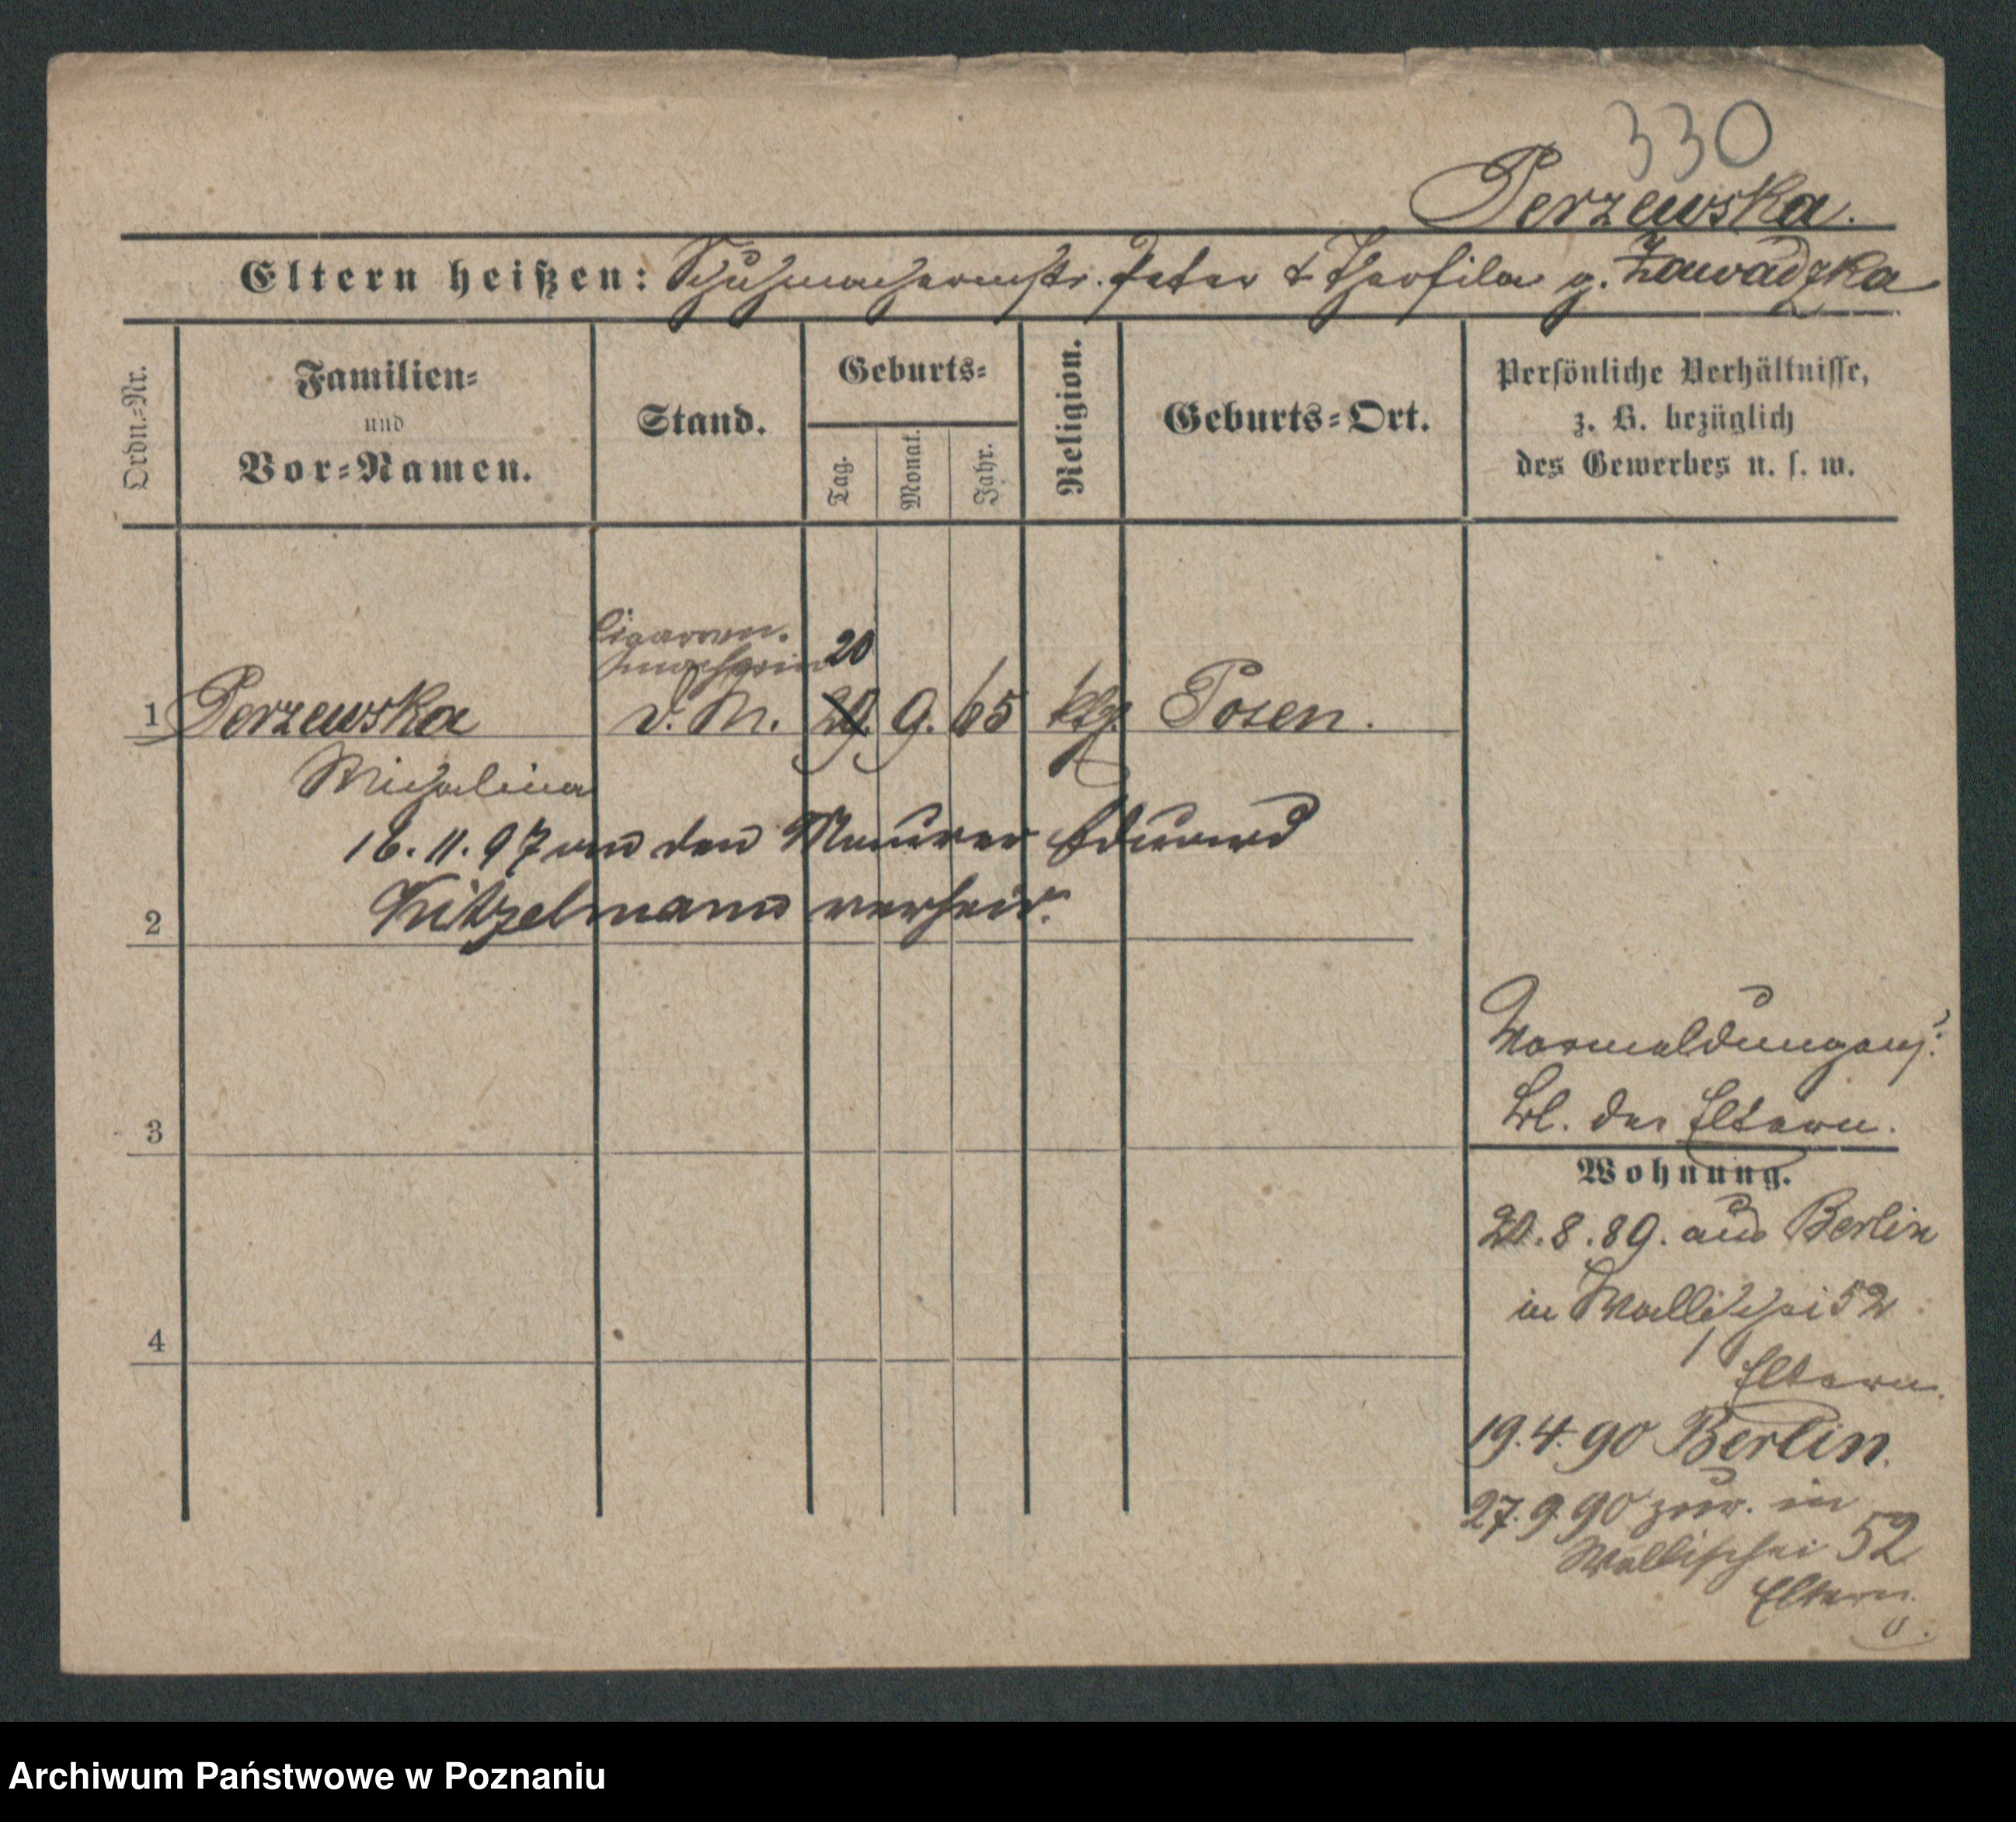 330
Perzewska.
Eltern heißen: Schuhmachermstr. Peter & Theofila g. Zawadzka
Ordn.-Nr.
Familien-
und
Vor-Namen.
Stand.
Geburts-
Tag.
Monat.
Jahr.
Religion.
Geburts-Ort.
Persönliche Verhältnisse,
z. B. bezüglich
des Gewerbes u. s. w.
Cigarren-
macherin 20
1 Perzewska d. M. 29. 9. 65 ktg. Posen.
Michalina
16.11.97 an den Maurer Eduard
2 Kitzelmann verheir.
3
4
Vormeldungen:
Bl. der Eltern.
Wohnung.
20.8.89. aus Berlin
in Wallischei 52
/ Eltern.
19.4.90 Berlin.
27.9.90 zur. in
Wallischei 52
Eltern.
Archiwum Państwowe w Poznaniu